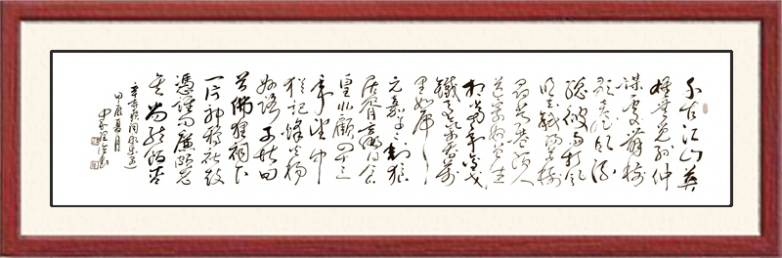 千古江山英
雄無覓孫仲
謀處舞榭
歌臺風流
總被雨打風
吹去斜陽草樹
尋常巷陌人
道寄奴曾住
想當年金戈
鐵馬氣吞萬
里如虎
元嘉草草封狼
居胥贏得倉
皇北顧四十三
年望中
猶記烽火揚
州路可堪回
首佛狸祠下
一片神鴉社鼓
憑誰問廉頗老
矣尚能飯否
辛棄疾詞永遇樂